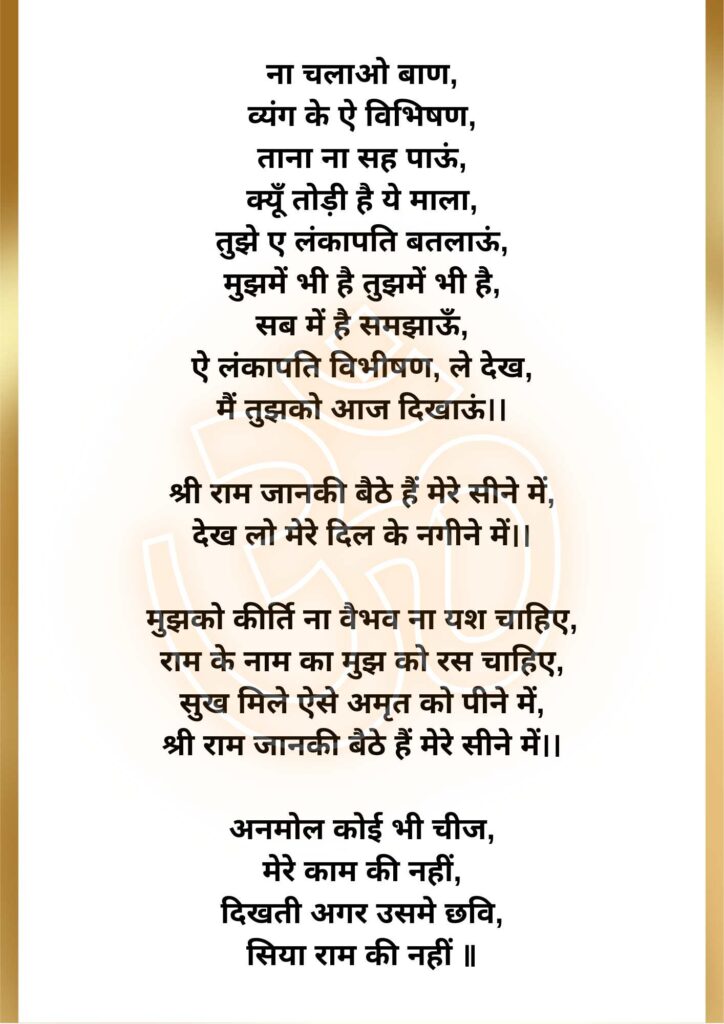 ना चलाओ बाण,
व्यंग के ऐ विभिषण,
ताना ना सह पाऊं,
क्यूँ तोड़ी है ये माला,
तुझे ए लंकापति बतलाऊं,
मुझमें भी है तुझमें भी है,
सब में है समझाऊँ,
ऐ लंकापति विभीषण, ले देख,
मैं तुझको आज दिखाऊं।।
श्री राम जानकी बैठे हैं मेरे सीने में,
देख लो मेरे दिल के नगीने में।।
मुझको कीर्ति ना वैभव ना यश चाहिए,
राम के नाम का मुझ को रस चाहिए,
सुख मिले ऐसे अमृत को पीने में,
श्री राम जानकी बैठे हैं मेरे सीने में।।
अनमोल कोई भी चीज,
मेरे काम की नहीं,
दिखती अगर उसमे छवि,
सिया राम की नहीं ॥
ॐ